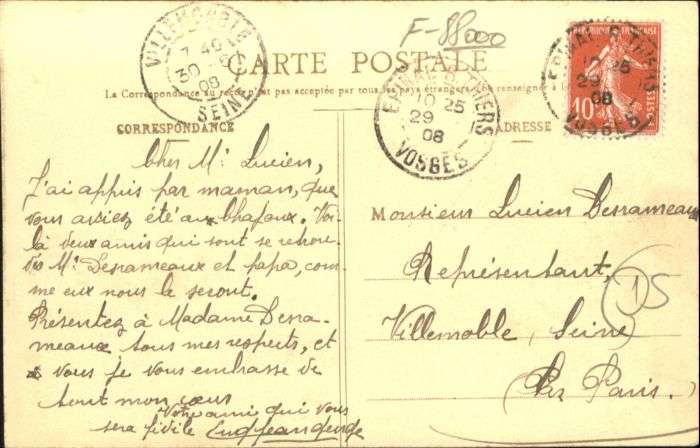 F-88000
CARTE POSTALE
La Correspondance au recto n'est pas acceptée par tous les pays étrangers. (Se renseigner à la
CORRESPONDANCE
ADRESSE
VILLEMOMBLE
7 40
30
08
SEINE
EPINAL R. THIERS
10 25
29
08
VOSGES
EPINAL R. THIERS
10 25
29
08
VOSGES
REPUBLIQUE FRANÇAISE
10
POSTES
Cher Mr Lucien,
J'ai appris par maman, que
vous aviez été au Chapaux. Voi-
là deux amis qui sont se retrou-
vés Mr Desrameaux et papa, com-
me eux nous le seront.
Présentez à Madame Desra-
meaux tous mes respects, et
à vous je vous embrasse de
tout mon cœur
Votre ami qui vous
sera fidèle
Monsieur Lucien Desrameaux
Représentant,
Villemoble, Seine
Per Paris.
15